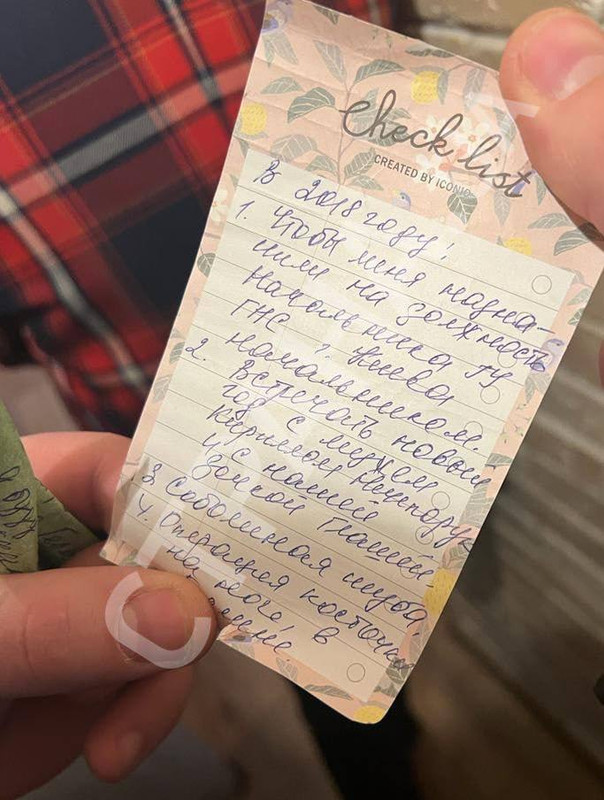 check list
CREATED BY ICONIQ
В 2018 году:
1. Чтобы меня назна-
чили на должность
начальника ГУ
ГНС г. Киева
начальником.
2. Встречать новый
год с мужем
Кириллом
и с нашей
дочкой
3 Соболиная шуба,
4. Операция косточки
на ноге в